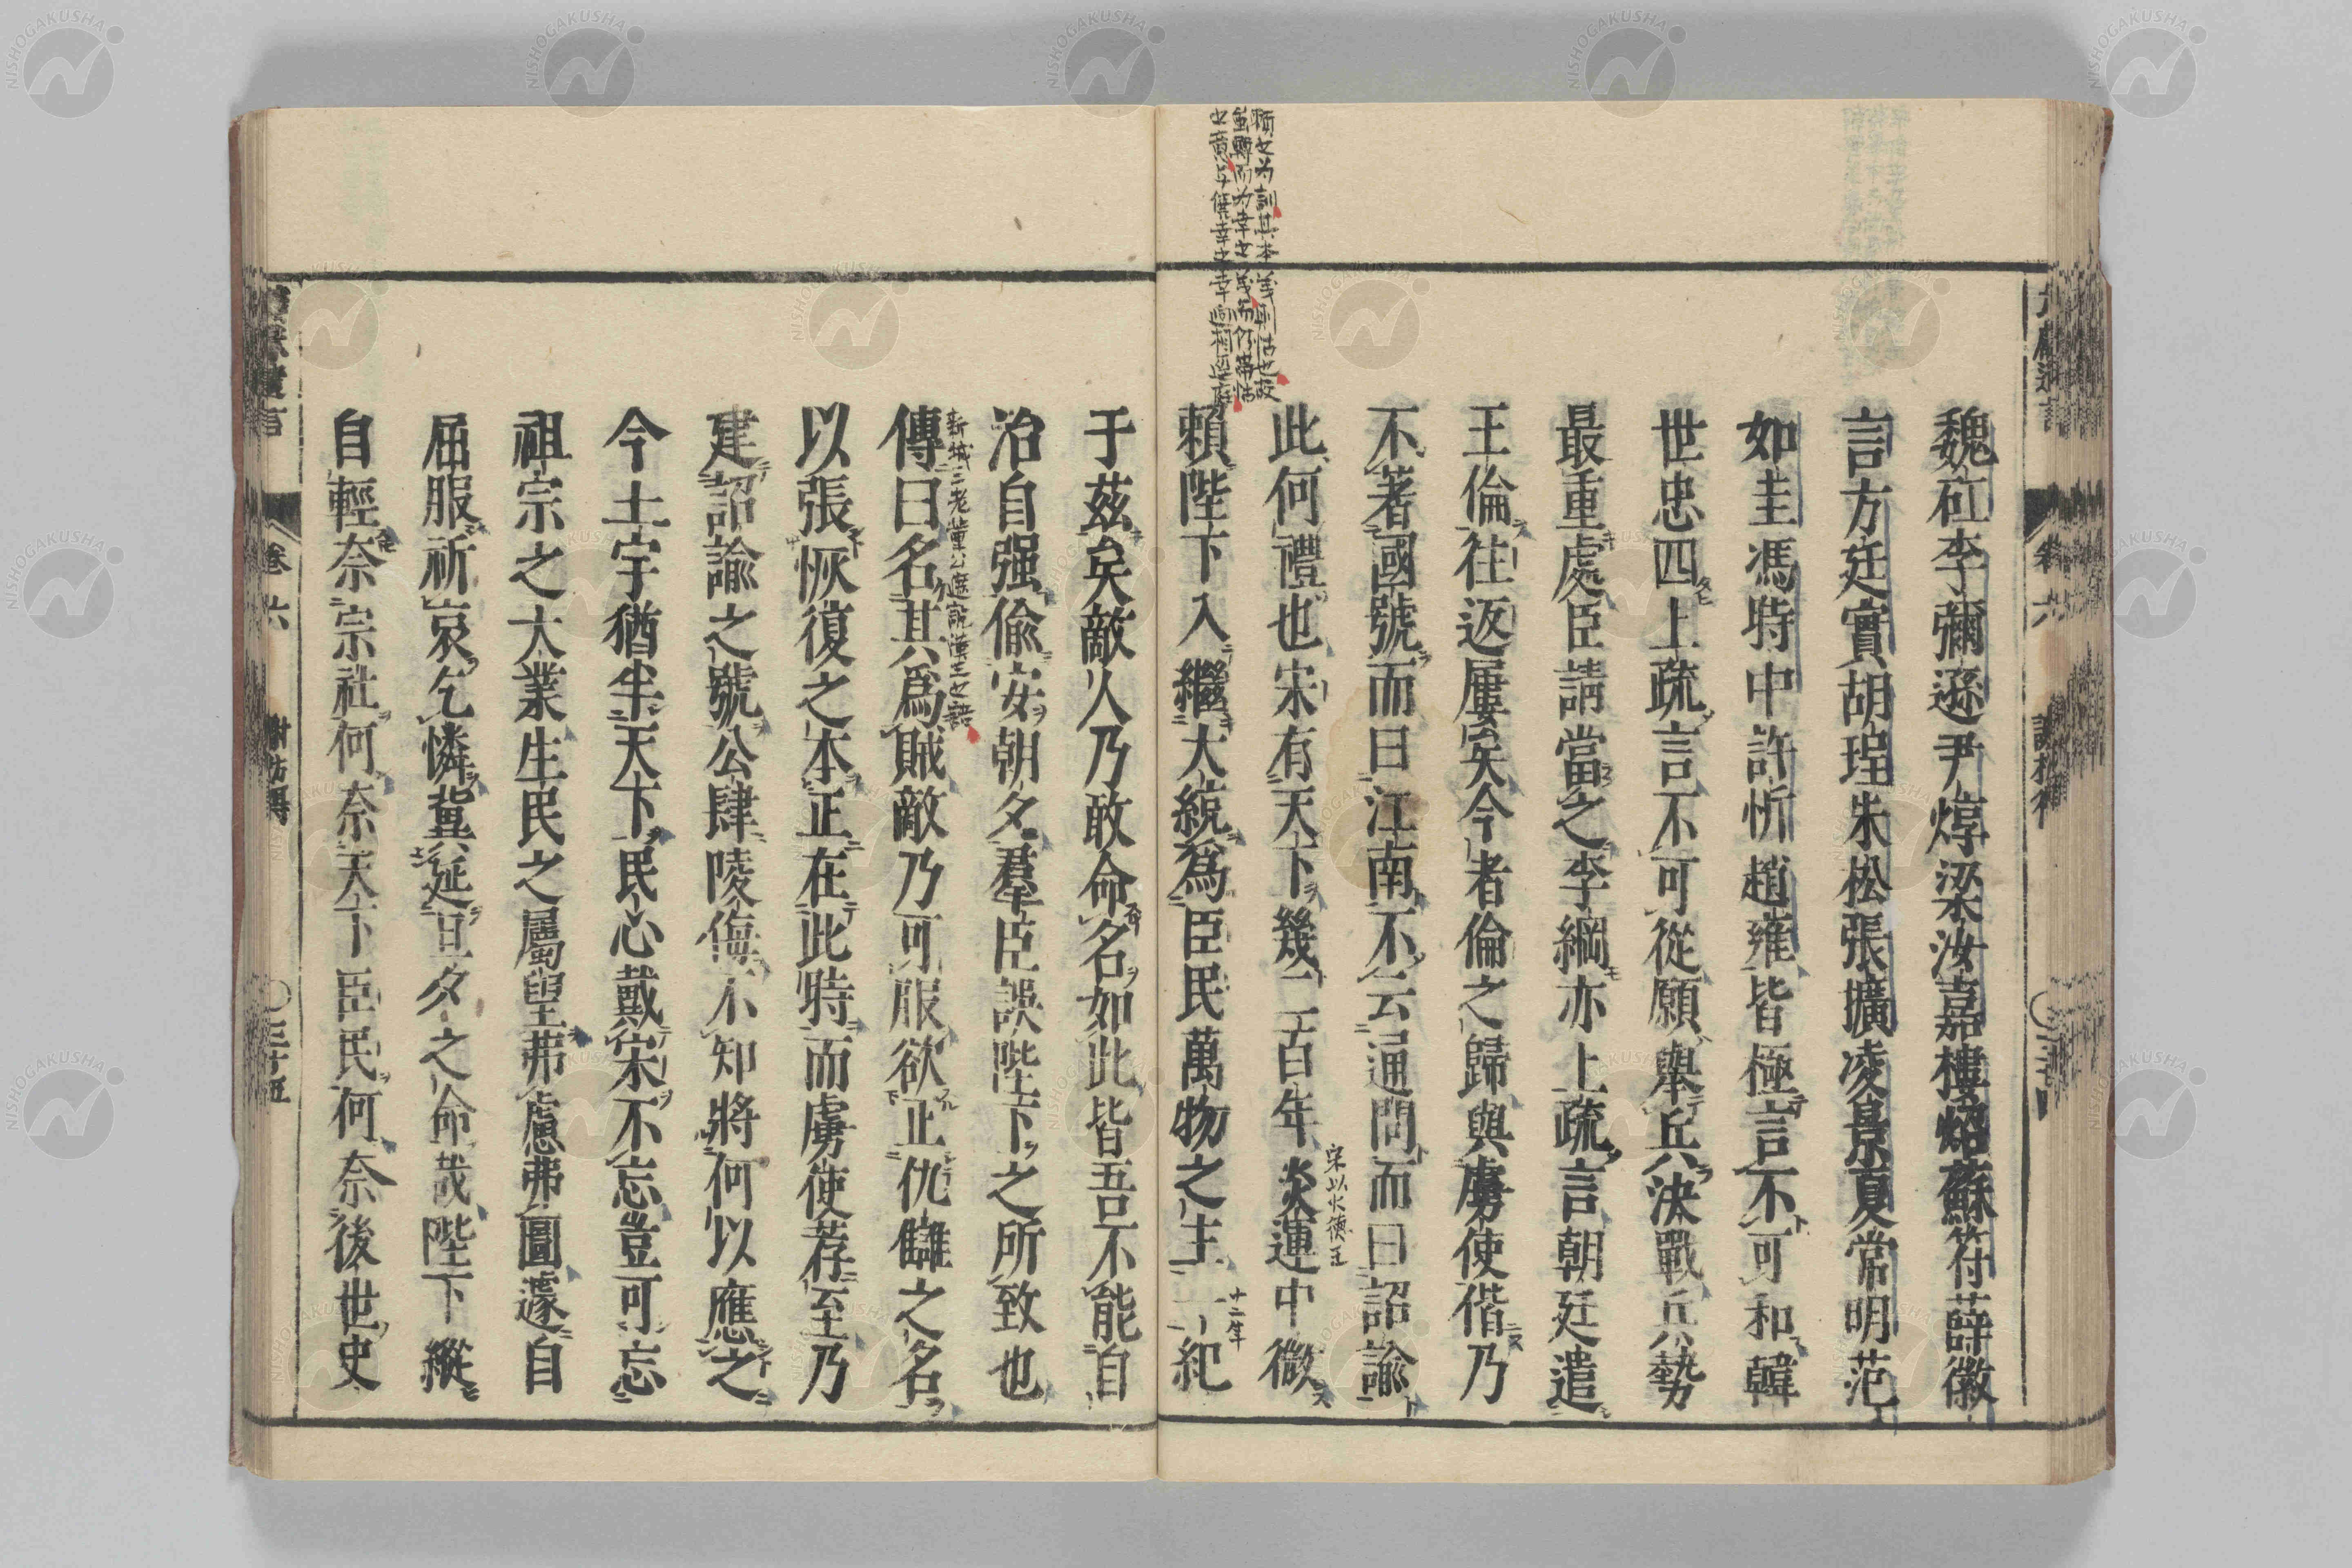 魏矼李彌遜尹焞梁汝嘉樓炤蘇符薛徽
言方廷實胡珵朱松張擴凌景夏常明范
如圭馮時中許忻趙雍皆極言不可和韓
世忠四上疏言不可從願舉兵決戰兵勢
最重處臣請當之李綱亦上疏言朝廷遣
王倫往返屢矣今者倫之歸與虜使偕乃
不著國號而曰江南不云通問而曰詔諭
此何禮也宋有天下幾二百年炎運中微
宋以火德王
賴陛下入繼大統爲臣民萬物之主一紀
十二年
于茲矣敵人乃敢命名如此皆吾不能自
治自强偸安朝夕羣臣誤陛下之所致也
傳曰名其爲賊敵乃可服欲正仇讎之名
新城三老董公遮說漢王之語
以張恢復之本正在此時而虜使荐至乃
建詔諭之號公肆陵侮不知將何以應之
今土宇猶半天下民心戴宋不忘豈可忘
祖宗之大業生民之屬望弗慮弗圖遽自
屈服祈哀乞憐冀延旦夕之命哉陛下縱
自輕奈宗社何奈天下臣民何奈後世史
卷六
謝枋得
三十五
NISHOGAKUSHA